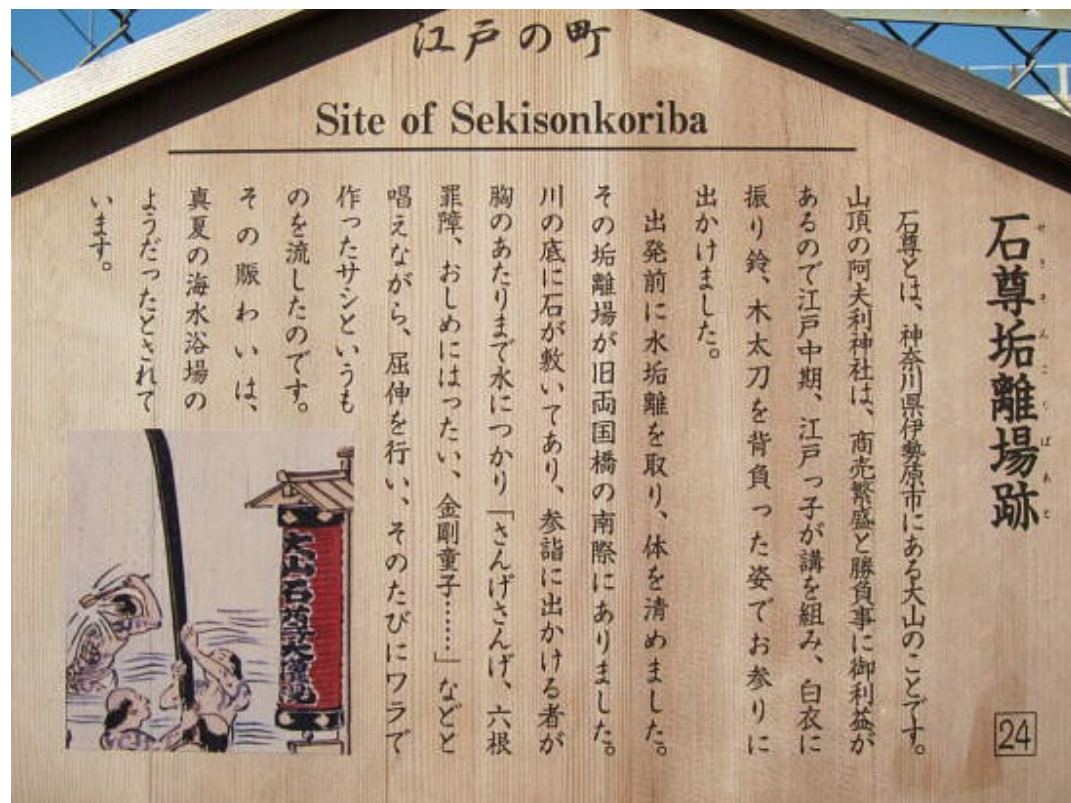 江戸の町
Site of Sekisonkoriba
石尊垢離場跡
せきそんこりばあと
石尊とは、神奈川県伊勢原市にある大山のことです。
山頂の阿夫利神社は、商売繁盛と勝負事に御利益が
あるので江戸中期、江戸っ子が講を組み、白衣に
振り鈴、木太刀を背負った姿でお参りに
出かけました。
出発前に水垢離を取り、体を清めました。
その垢離場が旧両国橋の南際にありました。
川の底に石が敷いてあり、参詣に出かける者が
胸のあたりまで水につかり「さんげさんげ、六根
罪障、おしめにはったい、金剛童子……」などと
唱えながら、屈伸を行い、そのたびにワラで
作ったサシというも
のを流したのです。
その賑わいは、
真夏の海水浴場の
ようだったとされて
います。
大山石尊大権現
24